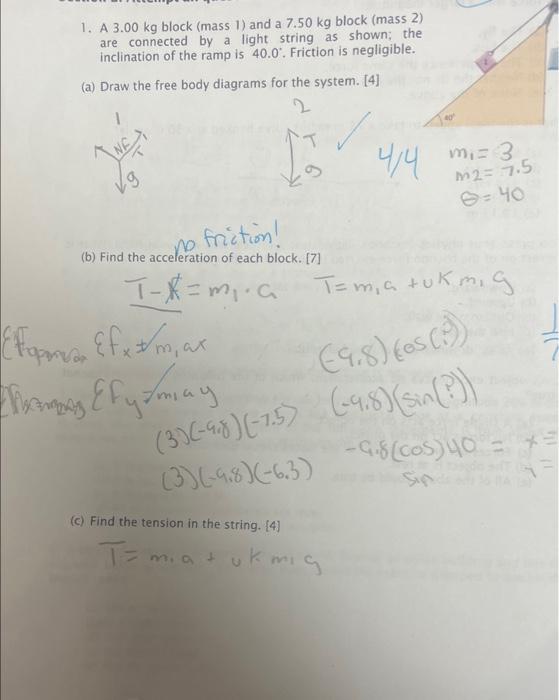 1. A 3.00 kg block (mass 1) and a 7.50 kg block (mass 2)
are connected by a light string as shown; the
inclination of the ramp is 40.0°. Friction is negligible.
(a) Draw the free body diagrams for the system. [4]
1
NF
T
g
2
T
g
4/4
40°
m1 = 3
m2 = 7.5
θ = 40
no friction!
(b) Find the acceleration of each block. [7]
T - = m1 · a
T = m1a + uK m1g
Σfx = m1ax
(-9.8)(cos(?))
Σfy = m1ay
(-9.8)(sin(?))
(3)(-9.8)(-7.5)
-9.8(cos)40 =
sin
(3)(-9.8)(-6.3)
(c) Find the tension in the string. [4]
T = m1a + uK m1g